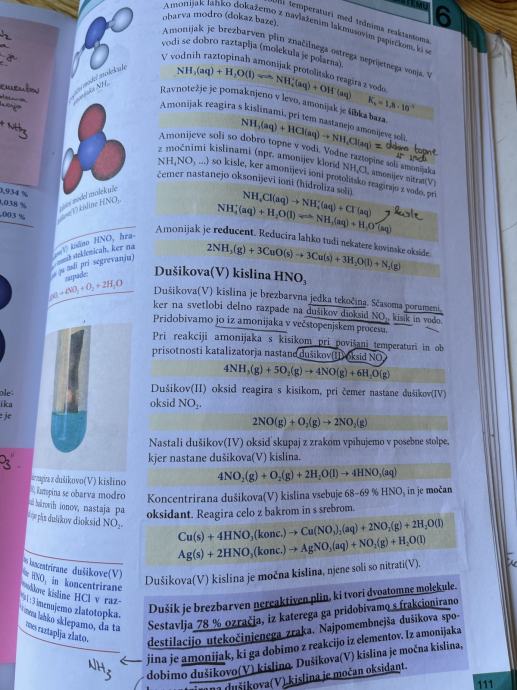 6
temperaturi med trdnima reaktantoma.
Amonijak lahko dokažemo z navlaženim lakmusovim papirčkom, ki se
obarva modro (dokaz baze).
Amonijak je brezbarven plin značilnega ostrega neprijetnega vonja. V
vodi se dobro raztaplja (molekula je polarna).
V vodnih raztopinah amonijak protolitsko reagira z vodo.
NH₃(aq) + H₂O(l) ⇌ NH₄⁺(aq) + OH⁻(aq) Kb = 1,8 · 10⁻⁵
Ravnotežje je pomaknjeno v levo, amonijak je šibka baza.
Amonijak reagira s kislinami, pri tem nastanejo amonijeve soli.
NH₃(aq) + HCl(aq) → NH₄Cl(aq) = dobro topne
v vodi
Amonijeve soli so dobro topne v vodi. Vodne raztopine soli amonijaka
z močnimi kislinami (npr. amonijev klorid NH₄Cl, amonijev nitrat(V)
NH₄NO₃ ...) so kisle, ker amonijevi ioni protolitsko reagirajo z vodo, pri
čemer nastanejo oksonijevi ioni (hidroliza soli).
NH₄Cl(aq) → NH₄⁺(aq) + Cl⁻(aq)
NH₄⁺(aq) + H₂O(l) ⇌ NH₃(aq) + H₃O⁺(aq)
kisle
Amonijak je reducent. Reducira lahko tudi nekatere kovinske okside.
2NH₃(g) + 3CuO(s) → 3Cu(s) + 3H₂O(l) + N₂(g)
Dušikova(V) kislina HNO₃
Dušikova(V) kislina je brezbarvna jedka tekočina. Sčasoma porumeni,
ker na svetlobi delno razpade na dušikov dioksid NO₂, kisik in vodo.
Pridobivamo jo iz amonijaka v večstopenjskem procesu.
Pri reakciji amonijaka s kisikom pri povišani temperaturi in ob
prisotnosti katalizatorja nastane dušikov(II) oksid NO.
4NH₃(g) + 5O₂(g) → 4NO(g) + 6H₂O(g)
Dušikov(II) oksid reagira s kisikom, pri čemer nastane dušikov(IV)
oksid NO₂.
2NO(g) + O₂(g) → 2NO₂(g)
Nastali dušikov(IV) oksid skupaj z zrakom vpihujemo v posebne stolpe,
kjer nastane dušikova(V) kislina.
4NO₂(g) + O₂(g) + 2H₂O(l) → 4HNO₃(aq)
Koncentrirana dušikova(V) kislina vsebuje 68–69 % HNO₃ in je močan
oksidant. Reagira celo z bakrom in s srebrom.
Cu(s) + 4HNO₃(konc.) → Cu(NO₃)₂(aq) + 2NO₂(g) + 2H₂O(l)
Ag(s) + 2HNO₃(konc.) → AgNO₃(aq) + NO₂(g) + H₂O(l)
Dušikova(V) kislina je močna kislina, njene soli so nitrati(V).
Dušik je brezbarven nereaktiven plin, ki tvori dvoatomne molekule.
Sestavlja 78 % ozračja, iz katerega ga pridobivamo s frakcionirano
destilacijo utekočinjenega zraka. Najpomembnejša dušikova spo-
jina je amonijak, ki ga dobimo z reakcijo iz elementov. Iz amonijaka
dobimo dušikovo(V) kislino. Dušikova(V) kislina je močna kislina,
dušikova(V) kislina je močan oksidant.
NH₃
111
model molekule
amonijaka NH₃.
model molekule
kisline HNO₃.
kislino HNO₃ hra-
temnih steklenicah, ker na
(pa tudi pri segrevanju)
razpade:
→ 4NO₂ + O₂ + 2H₂O
reagira z dušikovo(V) kislino
Raztopina se obarva modro
bakrovih ionov, nastaja pa
plin dušikov dioksid NO₂.
koncentrirane dušikove(V)
HNO₃ in koncentrirane
kisline HCl v raz-
1 : 3 imenujemo zlatotopka.
imena lahko sklepamo, da ta
zmes raztaplja zlato.
+ NH₃
0,934 %
,038 %
,003 %